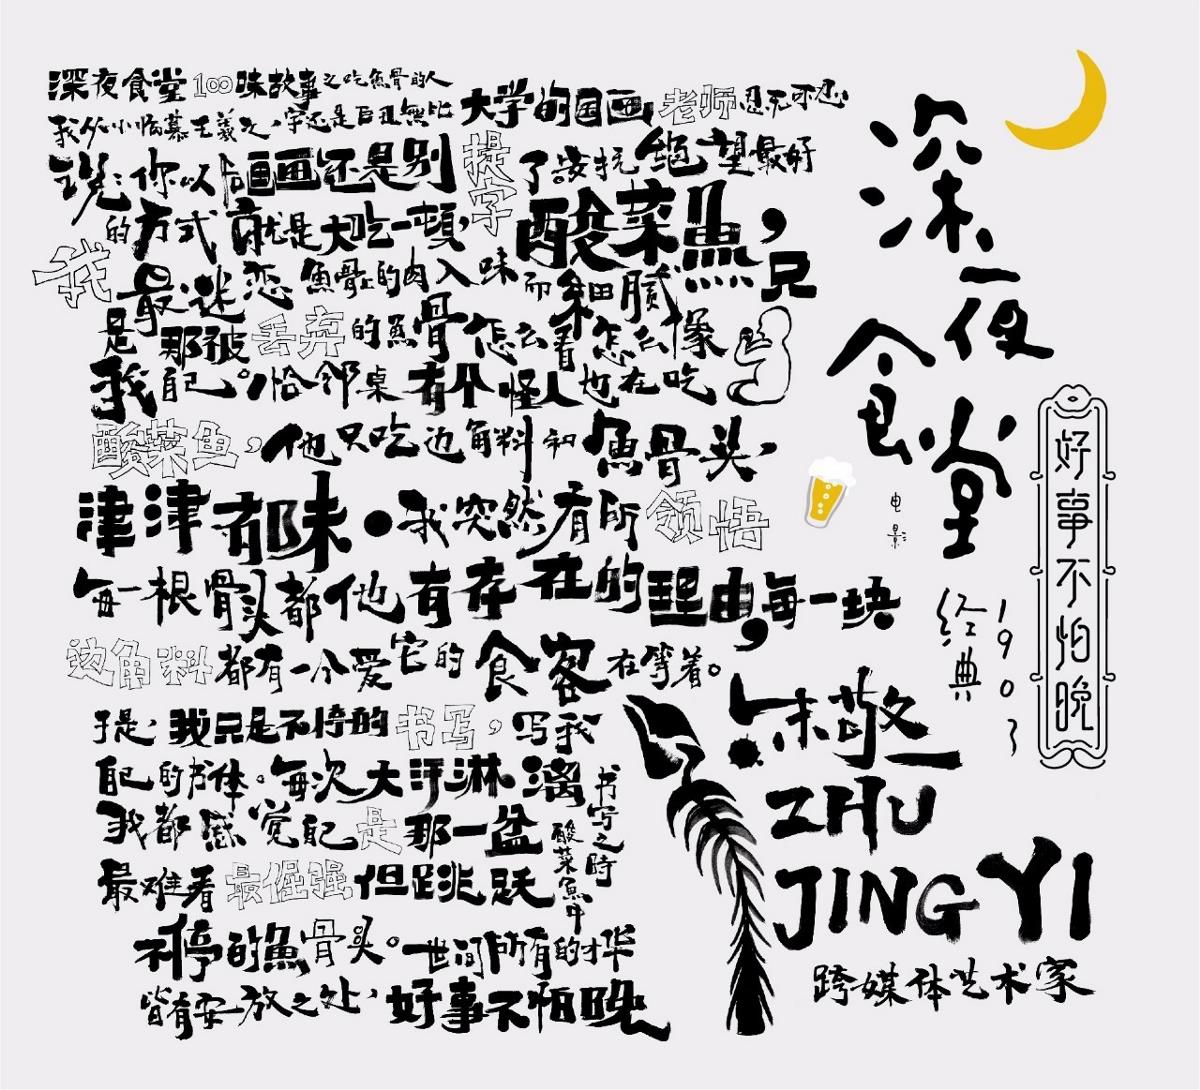 深夜食堂100味故事之吃魚骨的人
我从小临慕王羲之，字还是巨丑無比
大学的国画老师忍无可忍
说：你以后画画还是别提字了安抚绝望最好
的方式就是大吃一頓酸菜魚，只
我最迷恋魚骨上的肉入味而細腻
是那被丢弃的魚骨怎么看怎么像
我自己。恰邻桌有个怪人也在吃
酸菜鱼，他只吃边角料和魚骨头，
津津有味。我突然有所领悟
每一根骨头都他有存在的理由，每一块
边角料都有一个爱它的食客在等着。
于是，我只是不停的书写，写我
自己的书体。每次大汗淋漓书写之時
我都感觉自己是那一盆酸菜魚中
最难看最倔强但跳跃
不停的魚骨头。世间所有的才华
皆有安放之处，好事不怕晚
深夜食堂
电影
经典
1903
好事不怕晚
朱敬一
ZHU
JING YI
跨媒体艺术家